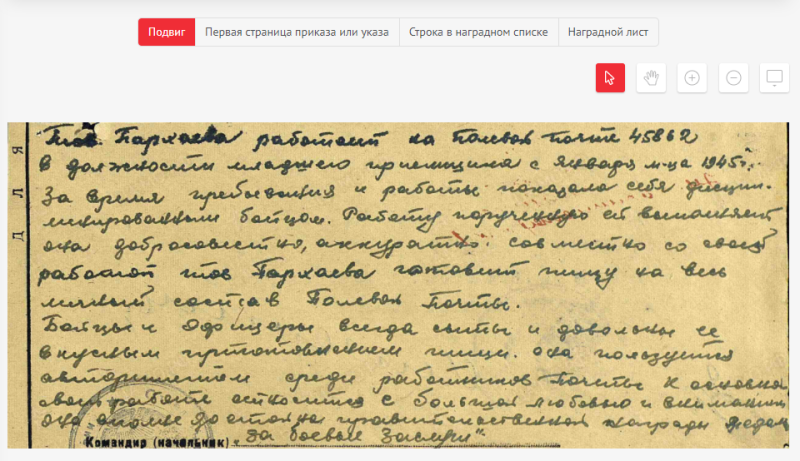 Подвиг Первая страница приказа или указа Строка в наградном списке Наградной лист
Тов. Пархаева работает на Полевой почте 45862
в должности младшего приемщика с января м-ца 1945г.
За время пребывания и работы показала себя дисци-
плинированным бойцом. Работу порученную ей выполняет
она добросовестно, аккуратно. совместно со своей
работой тов Пархаева готовит пищу на весь
личный состав Полевой Почты.
Бойцы и офицеры всегда сыты и довольны ее
вкусным приготовлением пищи. она пользуется
авторитетом среди работников Почты к основной
своей работе относится с большой любовью и вниманием
она вполне достойна правительственной награды медали
Командир (начальник) "За боевые Заслуги"
ДЛЯ